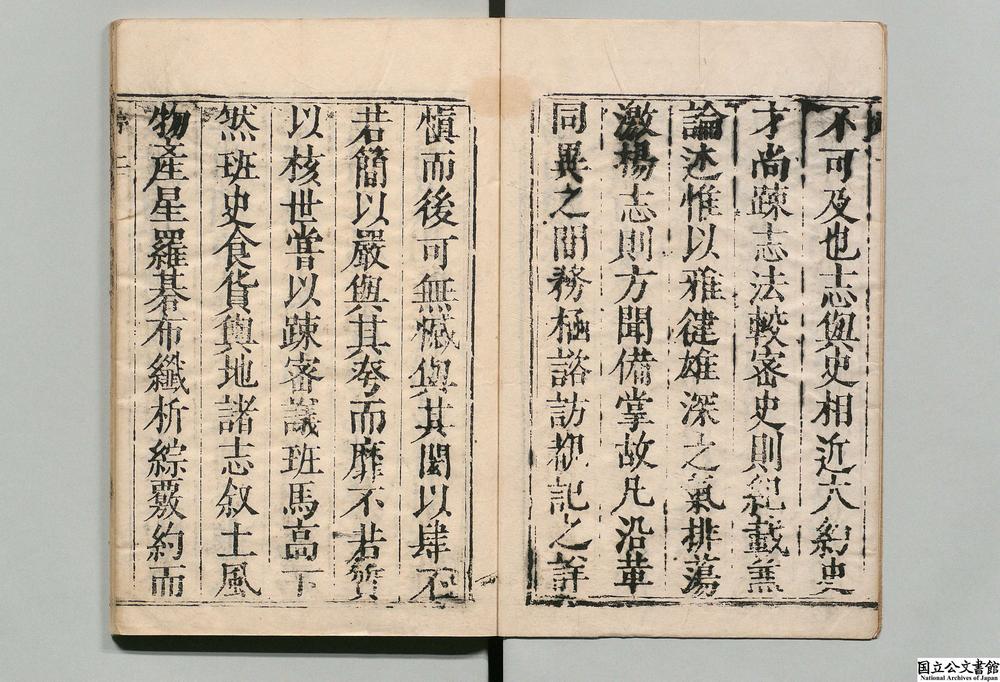 不可及也志與史相近大約史
才尚踈志法較密史則紀載兼
論述惟以雅健雄深之氣排蕩
激揚志則方聞備掌故凡沿革
同異之間務極諮訪覩記之詳
愼而後可無憾與其閎以肆不
若簡以嚴與其夸而靡不若質
以核世嘗以踈密議班馬高下
然班史食貨與地諸志叙土風
物產星羅碁布纖析綜覈約而
序 二
国立公文書館
National Archives of Japan